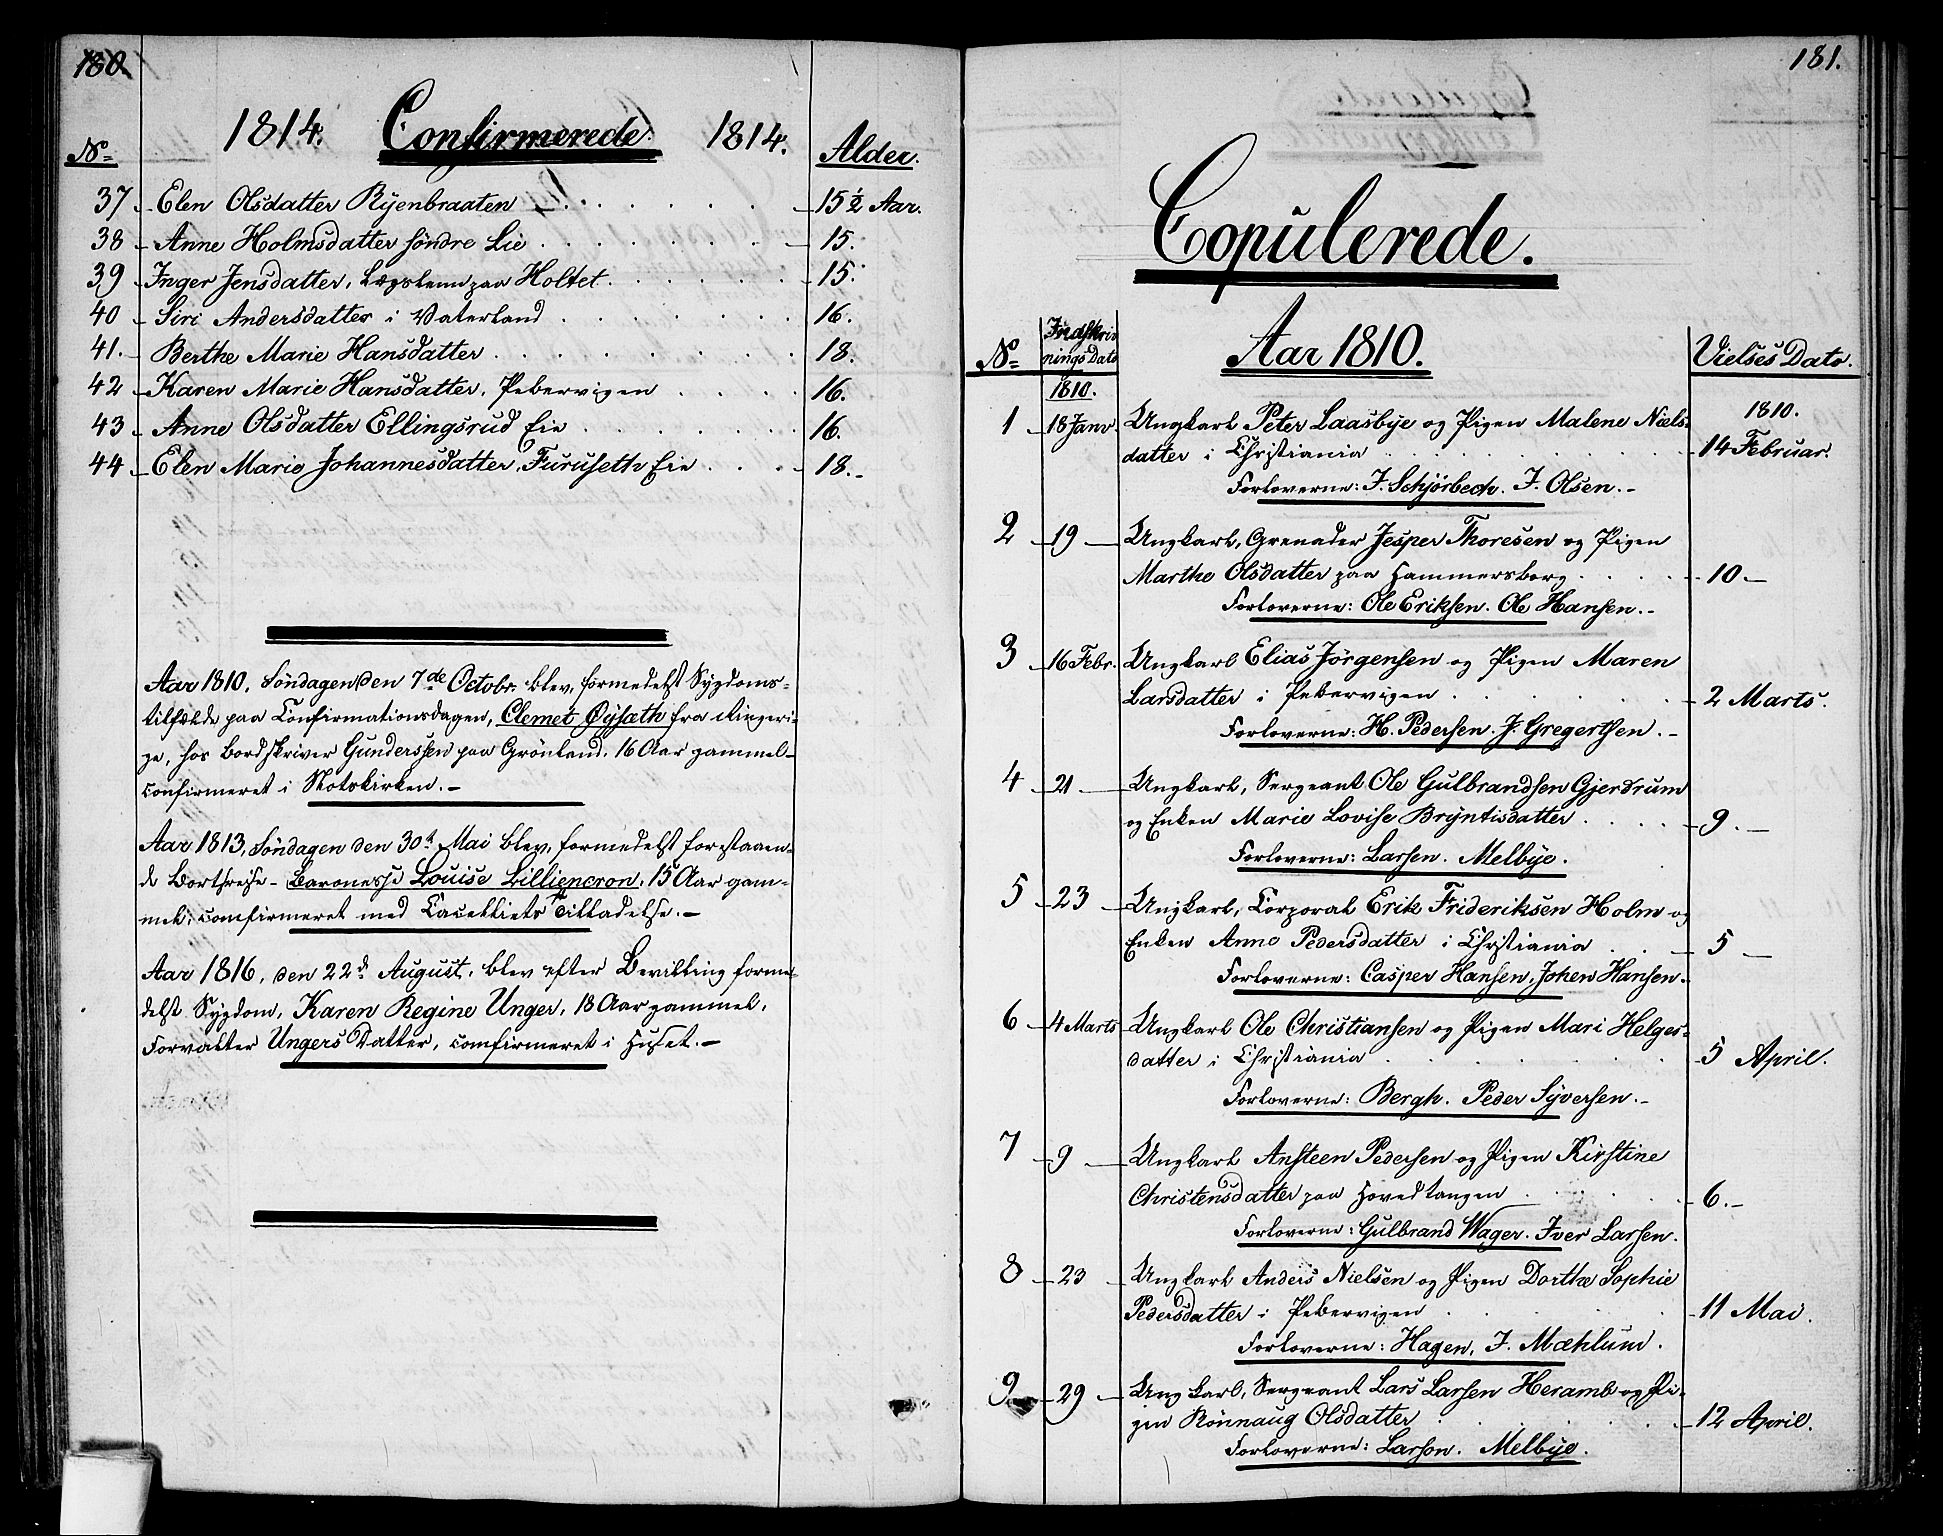 180.
1814. Confirmerede. 1814.
No Alder.
37 Elen Olsdatter Ryenbraaten 15½ Aar.
38 Anne Holmsdatter söndre Lie 15.
39 Inger Jensdatter, Løgslem paa Holtet 15.
40 Siri Andersdatter i Vaterland 16.
41. Berthe Marie Hansdatter 18.
42 Karen Marie Hansdatter, Pebervigen 16.
43 Anne Olsdatter Ellingsrud Eie 16.
44 Elen Marie Johannesdatter, Furuseth Eie 18.
Aar 1810, Söndagen den 7de Octobr. blev, formedelst Sygdoms-
tilfælde paa Confirmationsdagen, Clemet Øysæth fra Ringeri-
ge, hos Bordskriver Gunderssen paa Grönland, 16 Aar gammel
confirmeret i Slotskirken.
Aar 1813, Söndagen den 30te Mai blev, formedelst forestaaen-
de Bortreise - Baronesse Louise Lilliencron, 15 Aar gam-
mel, confirmeret med Cancelliets Tilladelse.
Aar 1816, den 22de August, blev efter Bevilling forme-
delst Sygdom, Karen Regine Unger, 18 Aar gammel,
Forvalter Ungers Datter, confirmeret i Huset.
181.
Copulerede.
No Indskriv-
nings Dato Aar 1810. Vielses Dato.
1810. 1810.
1 18 Janv. Ungkarl Peter Laasbye og Pigen Malene Niels-
datter i Christiania 14 Februar.
Forloverne: J. Schjørbech. J. Olsen.
2 19 Ungkarl, Grenader Jesper Thoresen og Pigen
Marthe Olsdatter paa Hammersborg 10
Forloverne: Ole Eriksen. Ole Hansen.
3 16 Febr. Ungkarl Elias Jörgensen og Pigen Maren
Larsdatter i Pebervigen 2 Marts.
Forloverne: H. Pedersen. J. Gregertsen.
4 21 Ungkarl, Sergeant Ole Gulbrandsen Gjerdrum
og Enken Marie Lovise Bryntisdatter 9.
Forloverne: Larsen. Melbye.
5 23 Ungkarl, Corporal Erik Frideriksen Holm og
Enken Anne Pedersdatter i Christiania 5
Forloverne: Casper Hansen, Johen Hansen.
6 4 Marts Ungkarl Ole Christiansen og Pigen Mari Helges-
datter i Christiania 5 April.
Forloverne: Bergh. Peder Syversen.
7 9 Ungkarl Ansteen Pedersen og Pigen Kirstine
Christensdatter paa Hovedtangen 6.
Forloverne: Gulbrand Wager. Iver Larsen.
8 23 Ungkarl Anders Nielsen og Pigen Dorthe Sophie
Pedersdatter i Pebervigen 11 Mai.
Forloverne: Hagen, J. Mæhlum.
9 29 Ungkarl, Sergeant Lars Larsen Heramb og Pi-
gen Rönnaug Olsdatter 12 April.
Forloverne: Larson. Melbye.